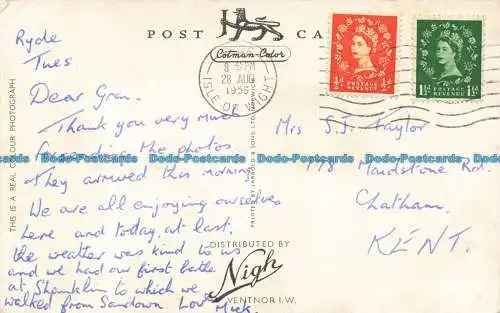 POST CA
Cotman-Color
Ryde
Tues
Dear Gran.
Thank you very much
for sending the photos
They arrived this morning.
We are all enjoying ourselves
here and today, at last,
the weather was kind to us
and we had our first bathe
at Shanklin to which we
walked from Sandown. Love Mick.
THIS IS A REAL COLOUR PHOTOGRAPH
8 PM
28 AUG
1956
ISLE OF WIGHT
½D POSTAGE REVENUE ½D
1½D POSTAGE REVENUE 1½D
Mrs S.J. Taylor
178 Maidstone Rd.
Chatham.
KENT.
DISTRIBUTED BY
Nigh
VENTNOR I.W.
Dodo-Postcards Dodo-Postcards Dodo-Postcards Dodo-Postcards